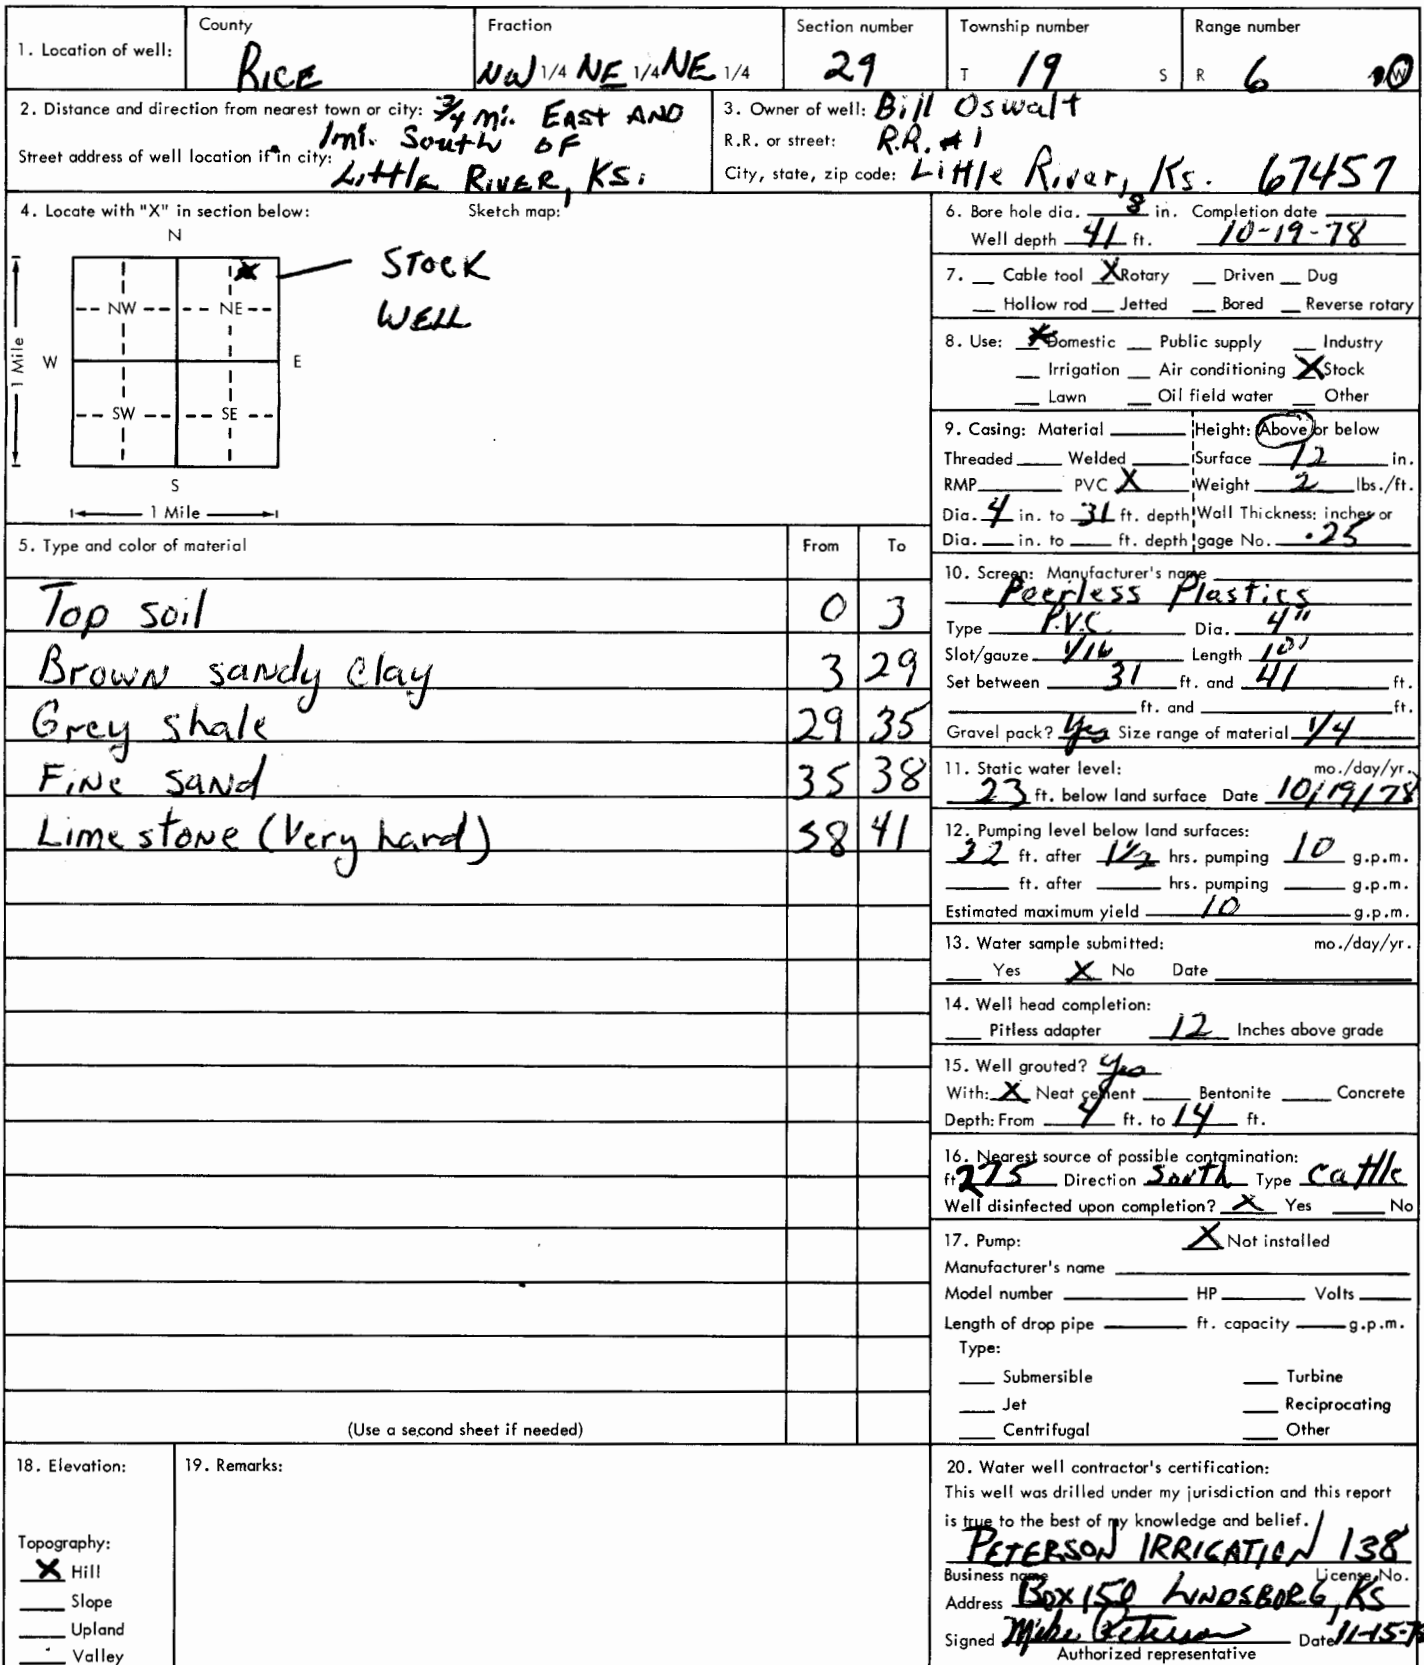 1. Location of well: County Rice Fraction NW 1/4 NE 1/4 NE 1/4 Section number 29 Township number T 19 S Range number R 6 W
2. Distance and direction from nearest town or city: 3/4 mi. East and
1 mi. South of
Street address of well location if in city: Little River, Ks.
3. Owner of well: Bill Oswalt
R.R. or street: R.R. #1
City, state, zip code: Little River, Ks. 67457
4. Locate with "X" in section below: Sketch map:
N
X
NW NE
W E
SW SE
S
1 Mile
1 Mile
Stock
Well
5. Type and color of material From To
Top soil 0 3
Brown sandy clay 3 29
Grey shale 29 35
Fine sand 35 38
Limestone (Very hard) 38 41
(Use a second sheet if needed)
6. Bore hole dia. 8 in. Completion date
Well depth 41 ft. 10-19-78
7. Cable tool X Rotary Driven Dug
Hollow rod Jetted Bored Reverse rotary
8. Use: X Domestic Public supply Industry
Irrigation Air conditioning X Stock
Lawn Oil field water Other
9. Casing: Material Height: Above or below
Threaded Welded Surface 12 in.
RMP PVC X Weight 2 lbs./ft.
Dia. 4 in. to 31 ft. depth Wall Thickness: inches or
Dia. in. to ft. depth gage No. .25
10. Screen: Manufacturer's name
Peerless Plastics
Type P.V.C Dia. 4"
Slot/gauze 1/16 Length 10'
Set between 31 ft. and 41 ft.
ft. and ft.
Gravel pack? Yes Size range of material 1/4
11. Static water level: mo./day/yr.
23 ft. below land surface Date 10/19/78
12. Pumping level below land surfaces:
32 ft. after 1 1/2 hrs. pumping 10 g.p.m.
ft. after hrs. pumping g.p.m.
Estimated maximum yield 10 g.p.m.
13. Water sample submitted: mo./day/yr.
Yes X No Date
14. Well head completion:
Pitless adapter 12 Inches above grade
15. Well grouted? Yes
With: X Neat cement Bentonite Concrete
Depth: From 4 ft. to 14 ft.
16. Nearest source of possible contamination:
ft. 275 Direction South Type Cattle
Well disinfected upon completion? X Yes No
17. Pump: X Not installed
Manufacturer's name
Model number HP Volts
Length of drop pipe ft. capacity g.p.m.
Type:
Submersible Turbine
Jet Reciprocating
Centrifugal Other
18. Elevation:
Topography:
X Hill
Slope
Upland
Valley
19. Remarks:
20. Water well contractor's certification:
This well was drilled under my jurisdiction and this report
is true to the best of my knowledge and belief.
Peterson Irrigation 138
Business name License No.
Address Box 150 Lindsborg, Ks
Signed Mike Peterson Date 11-15-78
Authorized representative